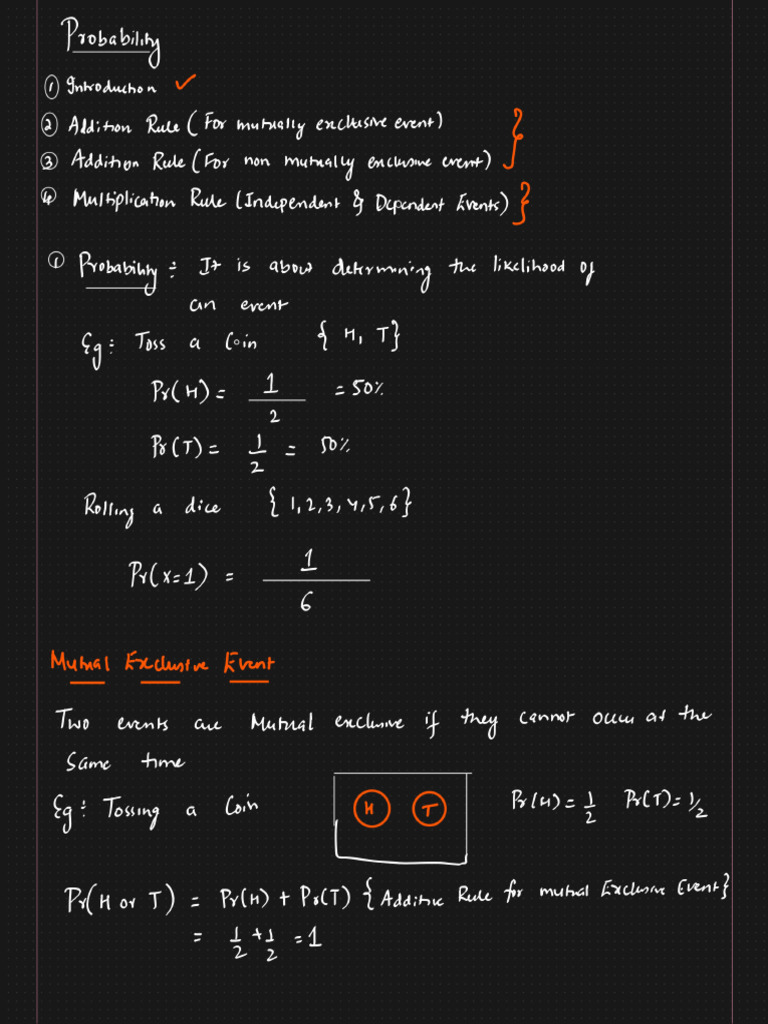 Probability
① Introduction ✓
② Addition Rule (For mutually exclusive event)
③ Addition Rule (For non mutually exclusive event)
④ Multiplication Rule (Independent & Dependent Events)
① Probability : It is about determining the likelihood of
an event
Eg: Toss a Coin {H, T}
Pr(H) = 1/2 = 50%
Pr(T) = 1/2 = 50%
Rolling a dice {1,2,3,4,5,6}
Pr(x=1) = 1/6
Mutual Exclusive Event
Two events are Mutual exclusive if they cannot occur at the
Same time
Eg: Tossing a Coin H T Pr(H) = 1/2 Pr(T) = 1/2
Pr(H or T) = Pr(H) + Pr(T) {Additive Rule for mutual Exclusive Event}
= 1/2 + 1/2 = 1